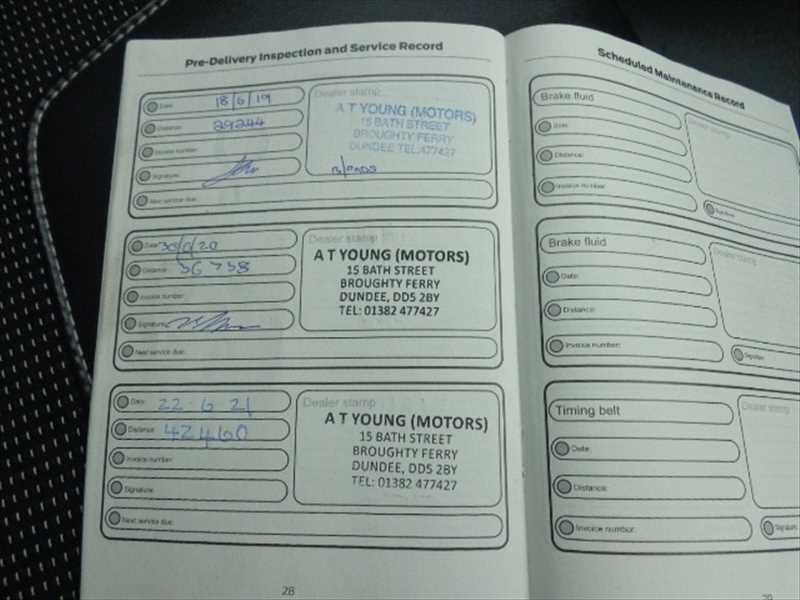 Pre-Delivery Inspection and Service Record
Date: 18/6/19
Distance: 29244
Invoice number:
Signature:
Next service due:
Dealer stamp
A T YOUNG (MOTORS)
15 BATH STREET
BROUGHTY FERRY
DUNDEE TEL:477427
Date:
Distance: 36758
Invoice number:
Signature:
Next service due:
Dealer stamp
A T YOUNG (MOTORS)
15 BATH STREET
BROUGHTY FERRY
DUNDEE, DD5 2BY
TEL: 01382 477427
Date: 22 . 6 21
Distance: 42460
Invoice number:
Signature:
Next service due:
Dealer stamp
A T YOUNG (MOTORS)
15 BATH STREET
BROUGHTY FERRY
DUNDEE, DD5 2BY
TEL: 01382 477427
28
Scheduled Maintenance Record
Brake fluid
Date:
Distance:
Invoice number:
Dealer stamp
Signature:
Brake fluid
Date:
Distance:
Invoice number:
Dealer stamp
Signature
Timing belt
Date:
Distance:
Invoice number:
Dealer stamp
Signature
29